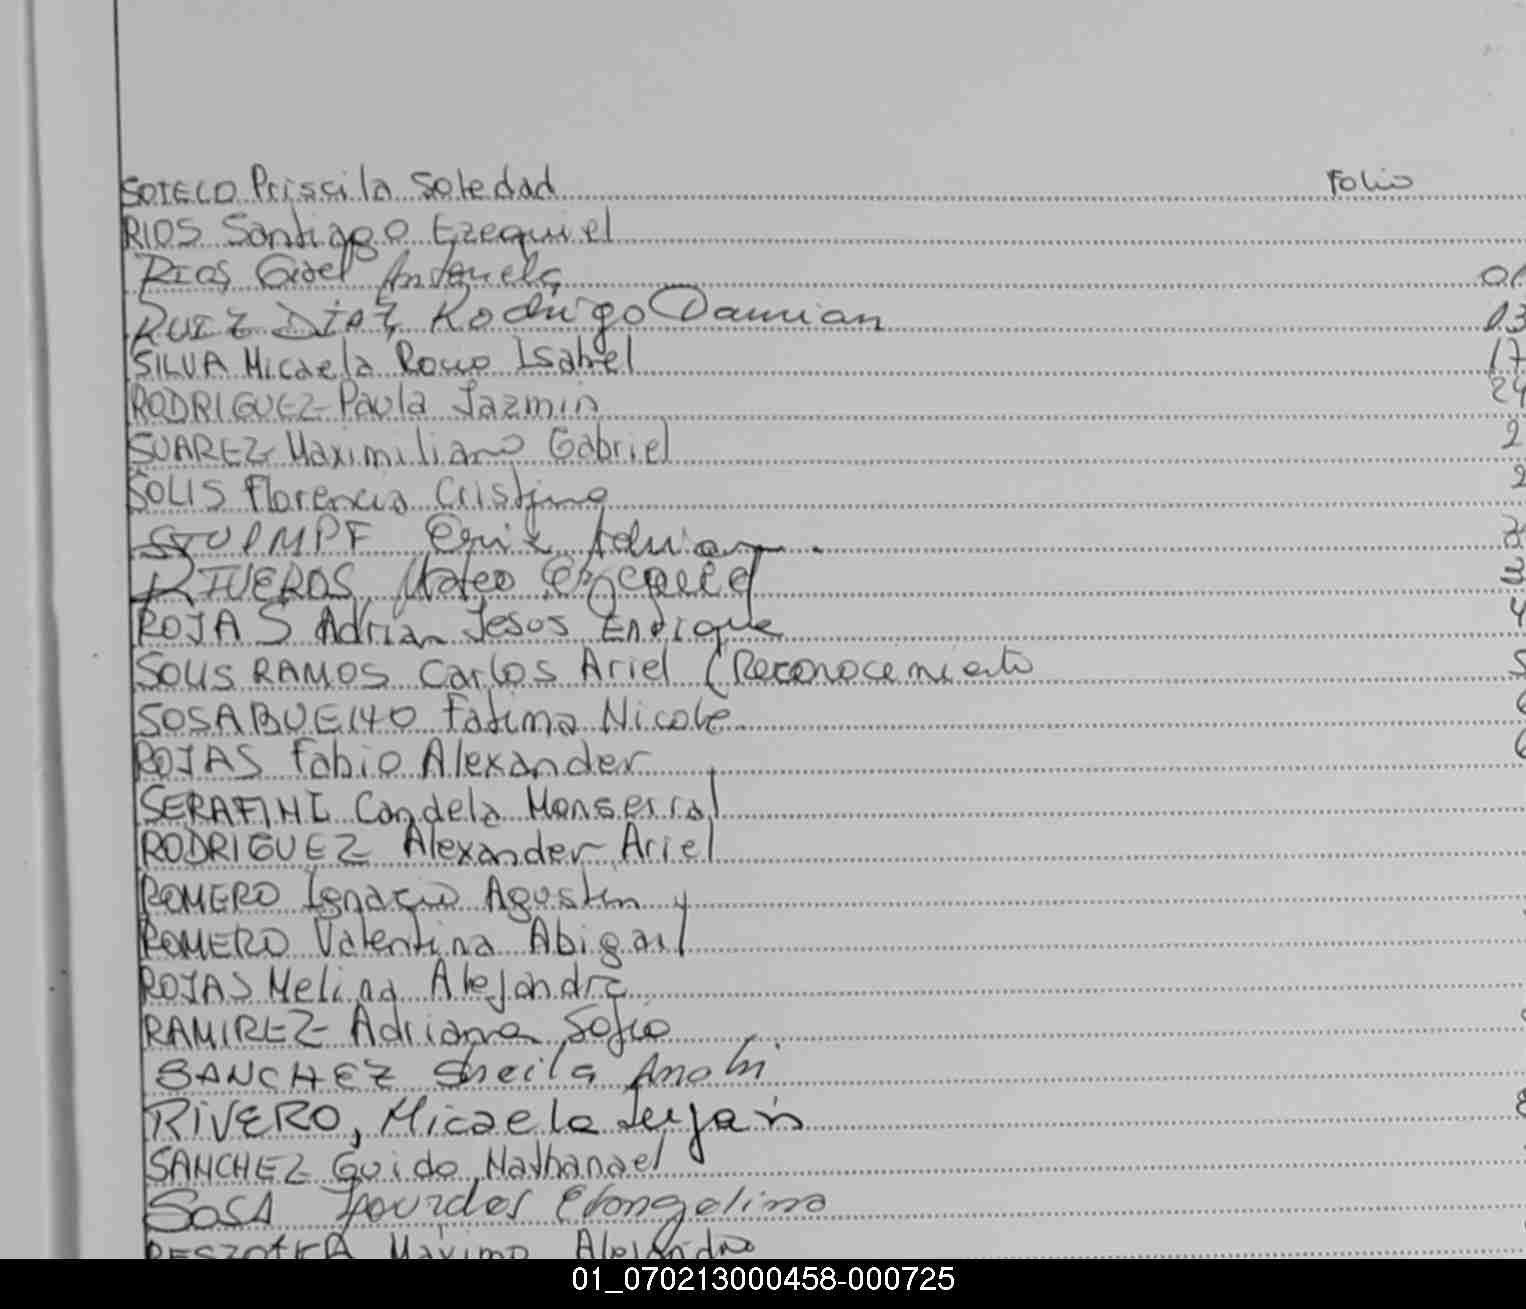 SOTELO Priscila Soledad Folio
RIOS Santiago Ezequiel
RIOS Gisel Antonela
RUIZ DIAZ Rodrigo Damian 13
SILVA Micaela Rocio Isabel 17
RODRIGUEZ Paula Jazmin 24
SUAREZ Maximiliano Gabriel 2
SOLIS Florencia Cristina 2
STUMPF Erik Adrian 2
RIVEROS Mateo Ezequiel 3
ROJAS Adrian Jesus Enrique 4
SOLIS RAMOS Carlos Ariel (Reconocimiento 5
SOSA Fatima Nicole 6
ROJAS Fabio Alexander 6
SERAFINI Candela Monserrat
RODRIGUEZ Alexander Ariel
ROMERO Ignacio Agustin y
ROMERO Valentina Abigail
ROJAS Melina Alejandra
RAMIREZ Adriana Sofia
SANCHEZ Sheila Anahi
RIVERO, Micaela 8
SANCHEZ Guido Nathanael
SOSA Lourdes Evangelina
Maximo Alejandro
01_070213000458-000725